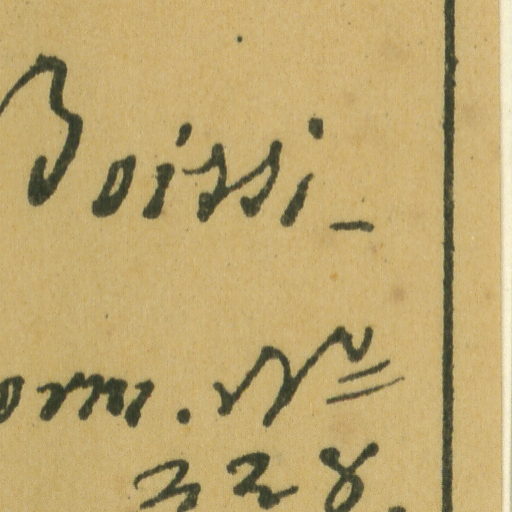 Boissi-
orm. Nº
328.